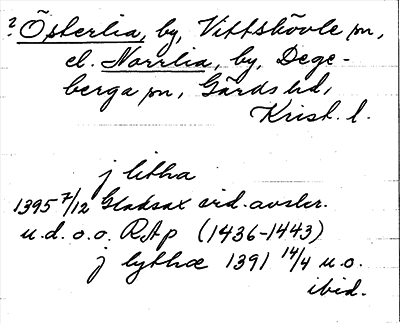 ? Österlia, by, Vittskövle sn,
el. Norrlia, by, Dege-
berga sn, Gärds hd,
Krist. l.
j litha
1395 7/12 Gladsax vid. avskr.
u.d. o.o. RAp (1436-1443)
j lythæ 1391 14/4 u.o.
ibid.